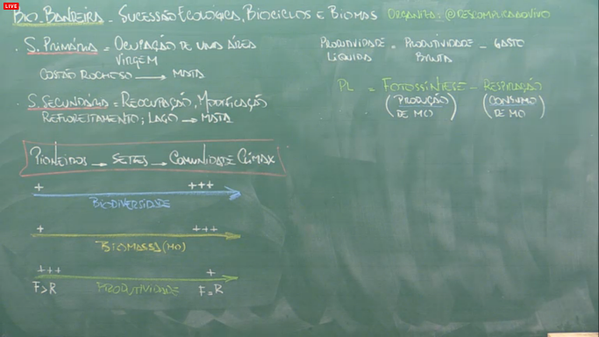 LIVE
BIO. BANDEIRA - SUCESSÃO ECOLÓGICA, BIOCICLOS E BIOMAS ORGANIZAS: @DESCOMPLICADAOVIVO
. S. PRIMÁRIA = OCUPAÇÃO DE UMA ÁREA
VIRGEM
COSTÃO ROCHOSO → MATA
. S. SECUNDÁRIA = REOCUPAÇÃO, MODIFICAÇÃO
REFLORESTAMENTO; LAGO → MATA
PIONEIROS → SERES → COMUNIDADE CLÍMAX
+ +++
BIODIVERSIDADE
+ +++
BIOMASSA (MO)
+++ +
F>R PRODUTIVIDADE F=R
PRODUTIVIDADE = PRODUTIVIDADE - GASTO
LÍQUIDA BRUTA
PL = FOTOSSÍNTESE - RESPIRAÇÃO
(PRODUÇÃO DE MO) (CONSUMO DE MO)